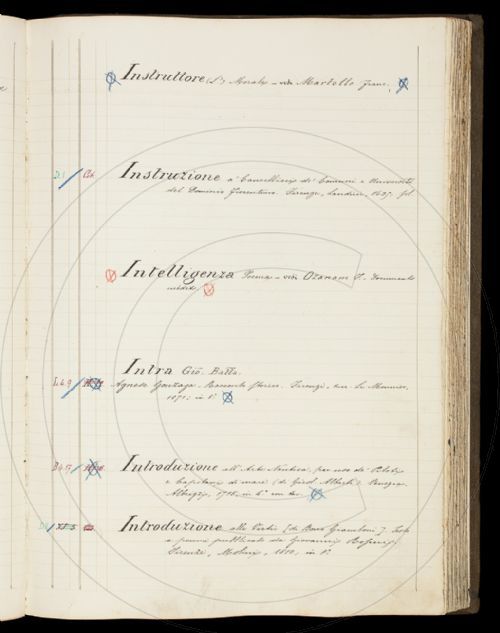 Instruttore (L') Morale - vedi Martello Franc.
D.1 /
Instruzione a' Cancellieri de' Comuni e Università
del Dominio Fiorentino. Firenze, Landini, 1635. fol
Intelligenza Poema - vedi Ozanam F. Documents
inédits
Intra Gio. Batta.
L.6.9 / Agnese Gonzaga. Racconto storico. Firenze, Le Monnier,
1871; in 8°
B.45 /
Introduzione all'Arte Nautica, per uso de' Piloti
e Capitani di mare (di Girol. Albrizzi). Venezia,
Albrizzi, 1715, in 4°
Introduzione alle Virtù [di Bono Giamboni]. Testo
a penna pubblicato da Giovanni Rosini.
Firenze, Molini, 1810, in 8°